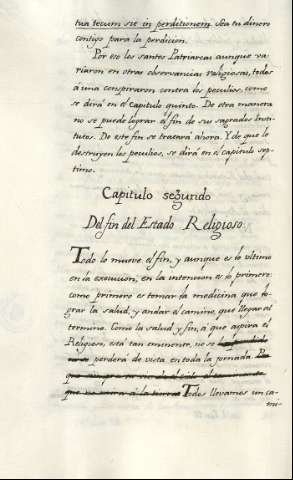 tua tecum sit in perditionem. Sea tu dinero
contigo para la perdicion.
Por eso los santos Patriarcas aunque va-
riaron en otras observancias religiosas, todos
á una conspiraron contra los peculios, como
se dirá en el capitulo quinto. De otra manera
no se puede lograr el fin de sus sagrados Insti-
tutos. De este fin se tratará ahora. Y de que lo
destruyen los peculios, se dirá en el capitulo sep-
timo.
Capitulo segundo
Del fin del Estado Religioso.
Todo lo mueve el fin, y aunque es lo ultimo
en la execucion, en la intencion es lo primero:
como primero es tomar la medicina que lo-
grar la salud, y andar el camino, que llegar al
termino. Como la salud y fin, á que aspira el
Religioso, está tan eminente, no se
perderá de vista en toda la jornada
que no mira á la tierra Todos llevamos un ca-
mi-